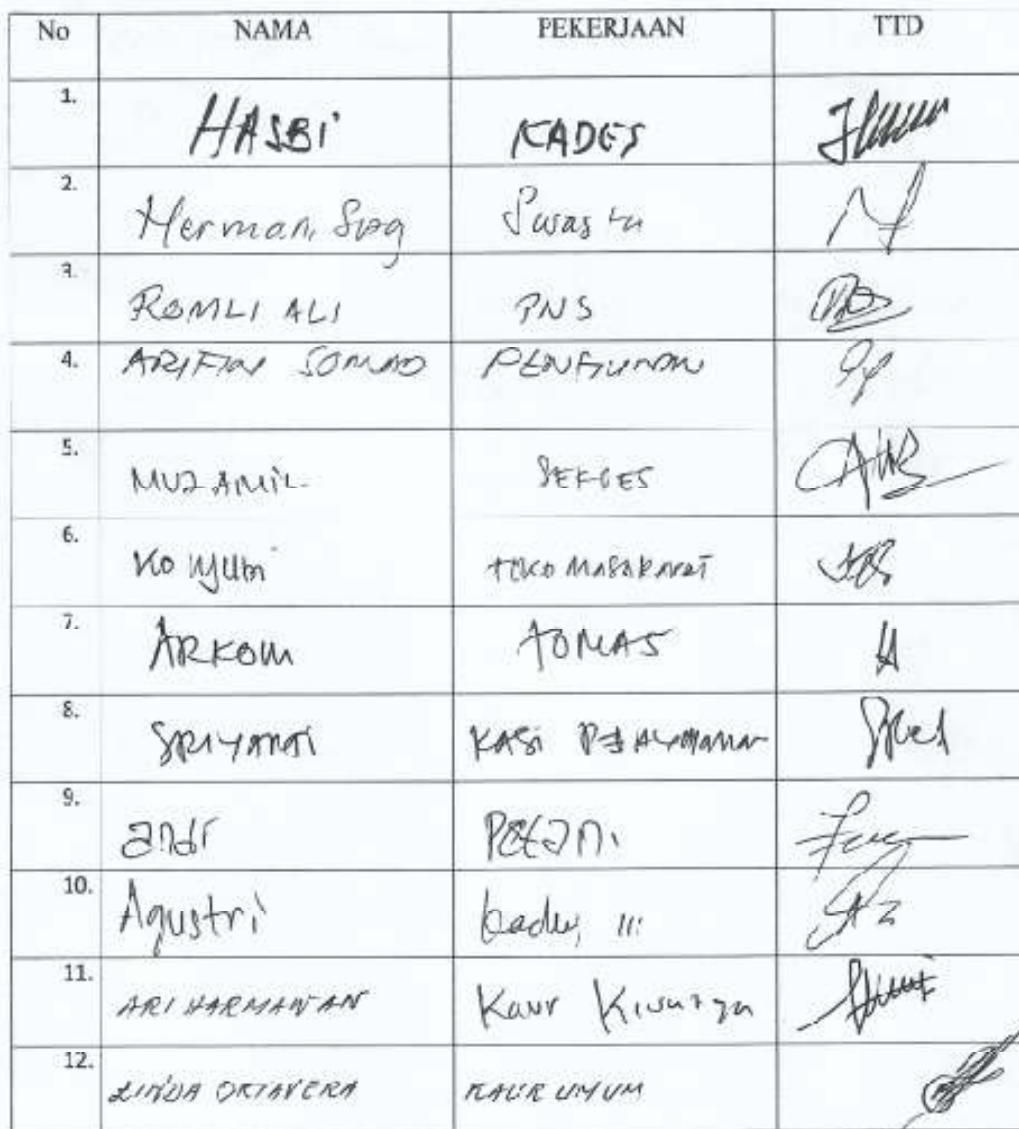 No NAMA PEKERJAAN TTD
1. HASBI KADES
2. Herman, Sag Swasta
3. ROMLI ALI PNS
4. ARIFIN SOMAD PENSIUNAN
5. MUZAMIL SEKDES
6. TOKO MASARAKAT
7. ARKOM TOMAS
8. SRIYANTI KASI
9. andi Petani
10. Agustri kadus III
11. ARI HARMAWAN Kaur
12. LINDA OKTAVERA KAUR UMUM